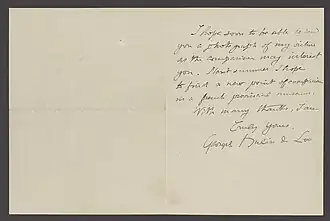 I hope soon to be able to send
you a photograph of my picture
as the comparison may interest
you. Next summer I hope
to find a new point of comparison
in a french provincial museum.
With many thanks, I am
Truly yours,
Georges Hulin de Loo